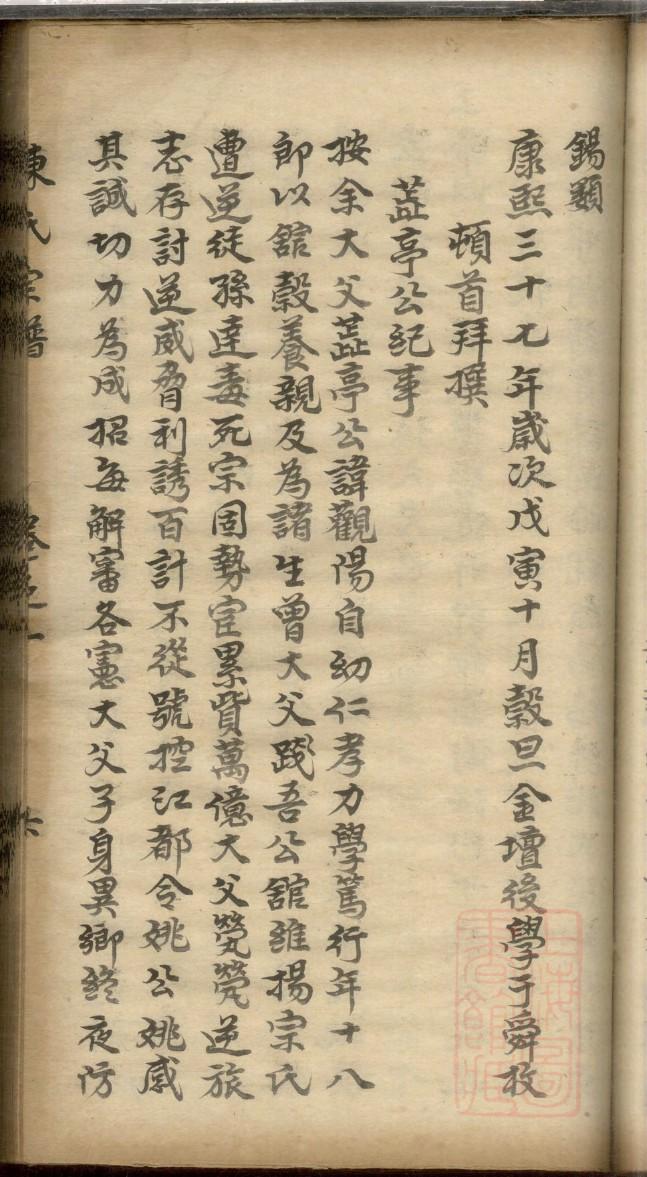 錫顯
康熙三十七年歲次戊寅十月穀旦金壇後學于舜枚
頓首拜撰
藎亭公紀事
按余大父藎亭公諱觀陽自幼仁孝力學篤行年十八
即以舘穀養親及為諸生曾大父踐吾公舘維揚宗氏
遭逆徒孫達毒死宗固勢宦累貲萬億大父煢煢逆旅
志存討逆威脅利誘百計不從號控江都令姚公姚感
其誠切力為成招每解審各憲大父孑身異鄉終夜防
陳氏宗譜
卷之一
上海圖書館藏